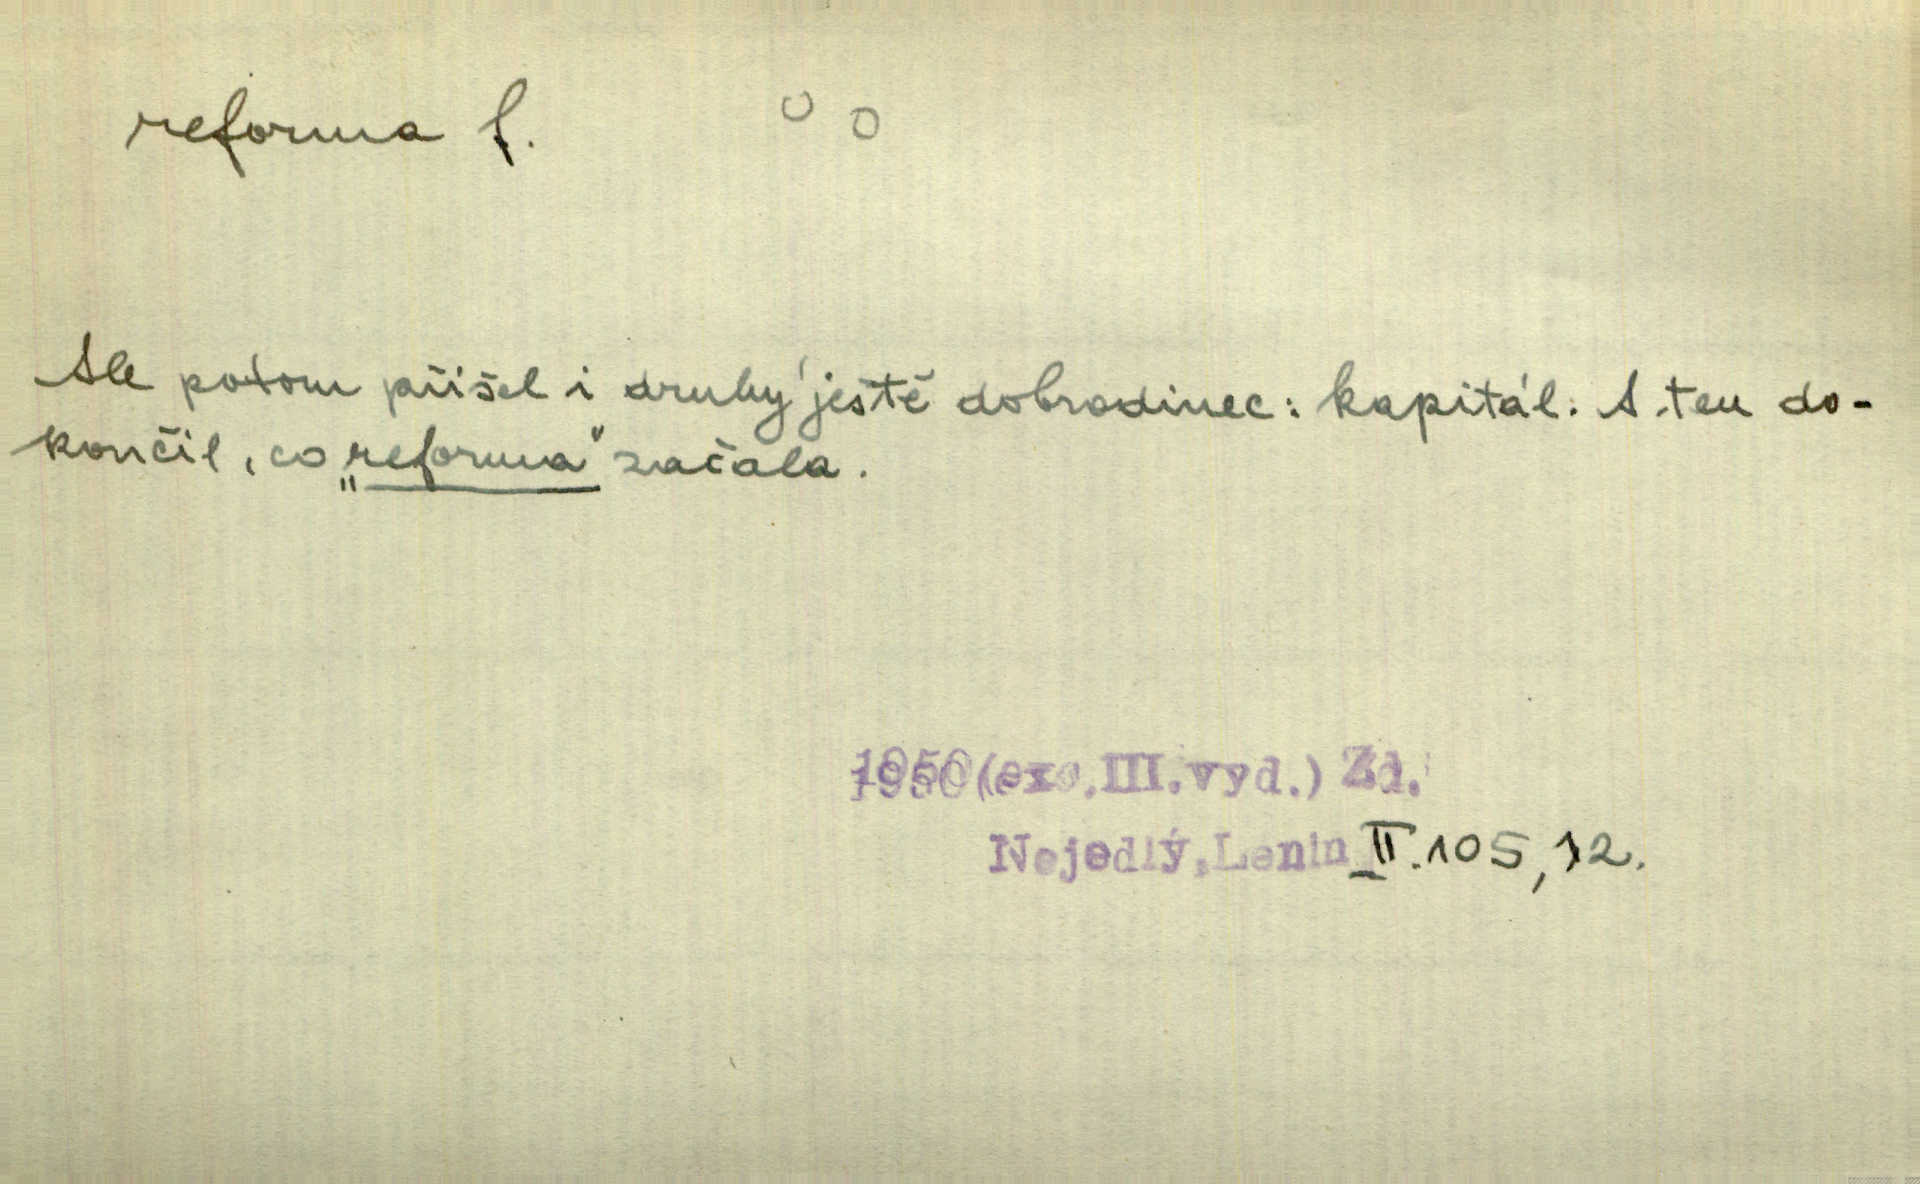 reforma f.
Ale potom přišel i druhý ještě dobrodinec: kapitál. A ten do-
končil, co „reforma" začala.
1950 (exc. III. vyd.) Zd.
Nejedlý, Lenin II. 105, 12.